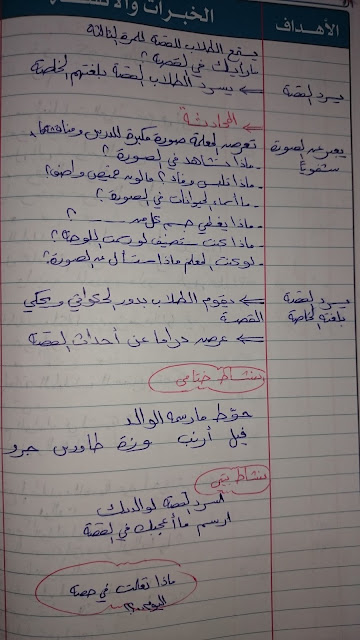 الأهداف
الخبرات والأنشطة
يستمع الطلاب للقصة للمرة الثالثة
ما رأيك في القصة؟
يسرد القصة ← يسرد الطلاب القصة بلغتهم الخاصة
← المحادثة
يعبر عن الصورة شفوياً
تعرض المعلمة صورة مكبرة للدرس
- ماذا تشاهد في الصورة؟
- ماذا تلبس وفاء؟ ما لون قميص واصف؟
- ما أسماء الحيوانات في الصورة؟
- ماذا يغطي جسم كل من ــــــ؟
- ماذا كنت ستضيف لو رسمت اللوحة؟
- لو كنت المعلم ماذا ستسأل عن الصورة؟
يسرد القصة بلغته الخاصة
← يقوم الطلاب بدور الحكواتي ويحكي القصة
← عرض دراما عن أحداث القصة
نشاط ختامي
حوّط ما رسمه الوالد
فيل أرنب وزة طاووس جرو
نشاط بيتي
اسرد القصة لوالديك
ارسم ما أعجبك في القصة
ماذا تعلمت في حصة
اليوم؟